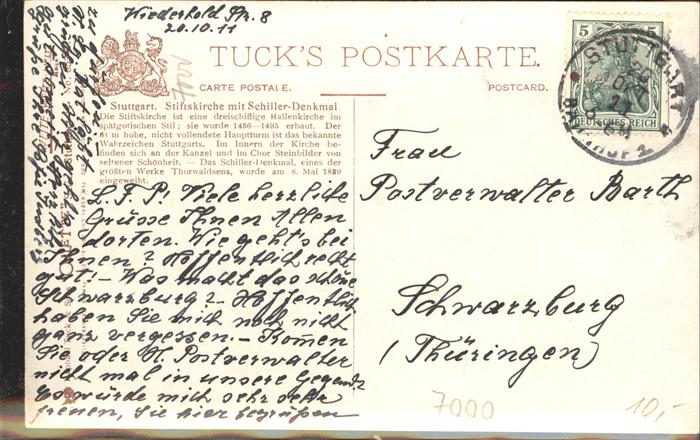 Wiederhold Str. 8
20.10.11
TUCK'S POSTKARTE.
CARTE POSTALE.
POSTCARD.
Stuttgart. Stiftskirche mit Schiller-Denkmal
Die Stiftskirche ist eine dreischiffige Hallenkirche im
spätgotischen Stil; sie wurde 1436—1495 erbaut. Der
61 m hohe, nicht vollendete Hauptturm ist das bekannte
Wahrzeichen Stuttgarts. Im Innern der Kirche be-
finden sich an der Kanzel und im Chor Steinbilder von
seltener Schönheit. — Das Schiller-Denkmal, eines der
größten Werke Thorwaldsens, wurde am 8. Mai 1839
eingeweiht.
L. F. P! Viele herzliche
Grüsse Ihnen Allen
dorten. Wie geht's bei
Ihnen? Hoffentlich recht
gut! – Was macht das schöne
Schwarzburg? – Hoffentlich
haben Sie mich noch nicht
ganz vergessen. – Komen
Sie oder H. Postverwalter
nicht mal in unsere Gegend?
Es würde mich sehr sehr
freuen, Sie hier begrüßen
5 5
DEUTSCHES REICH
STUTTGART
Frau
Postverwalter Barth
Schwarzburg
(Thüringen)
7000
10,-